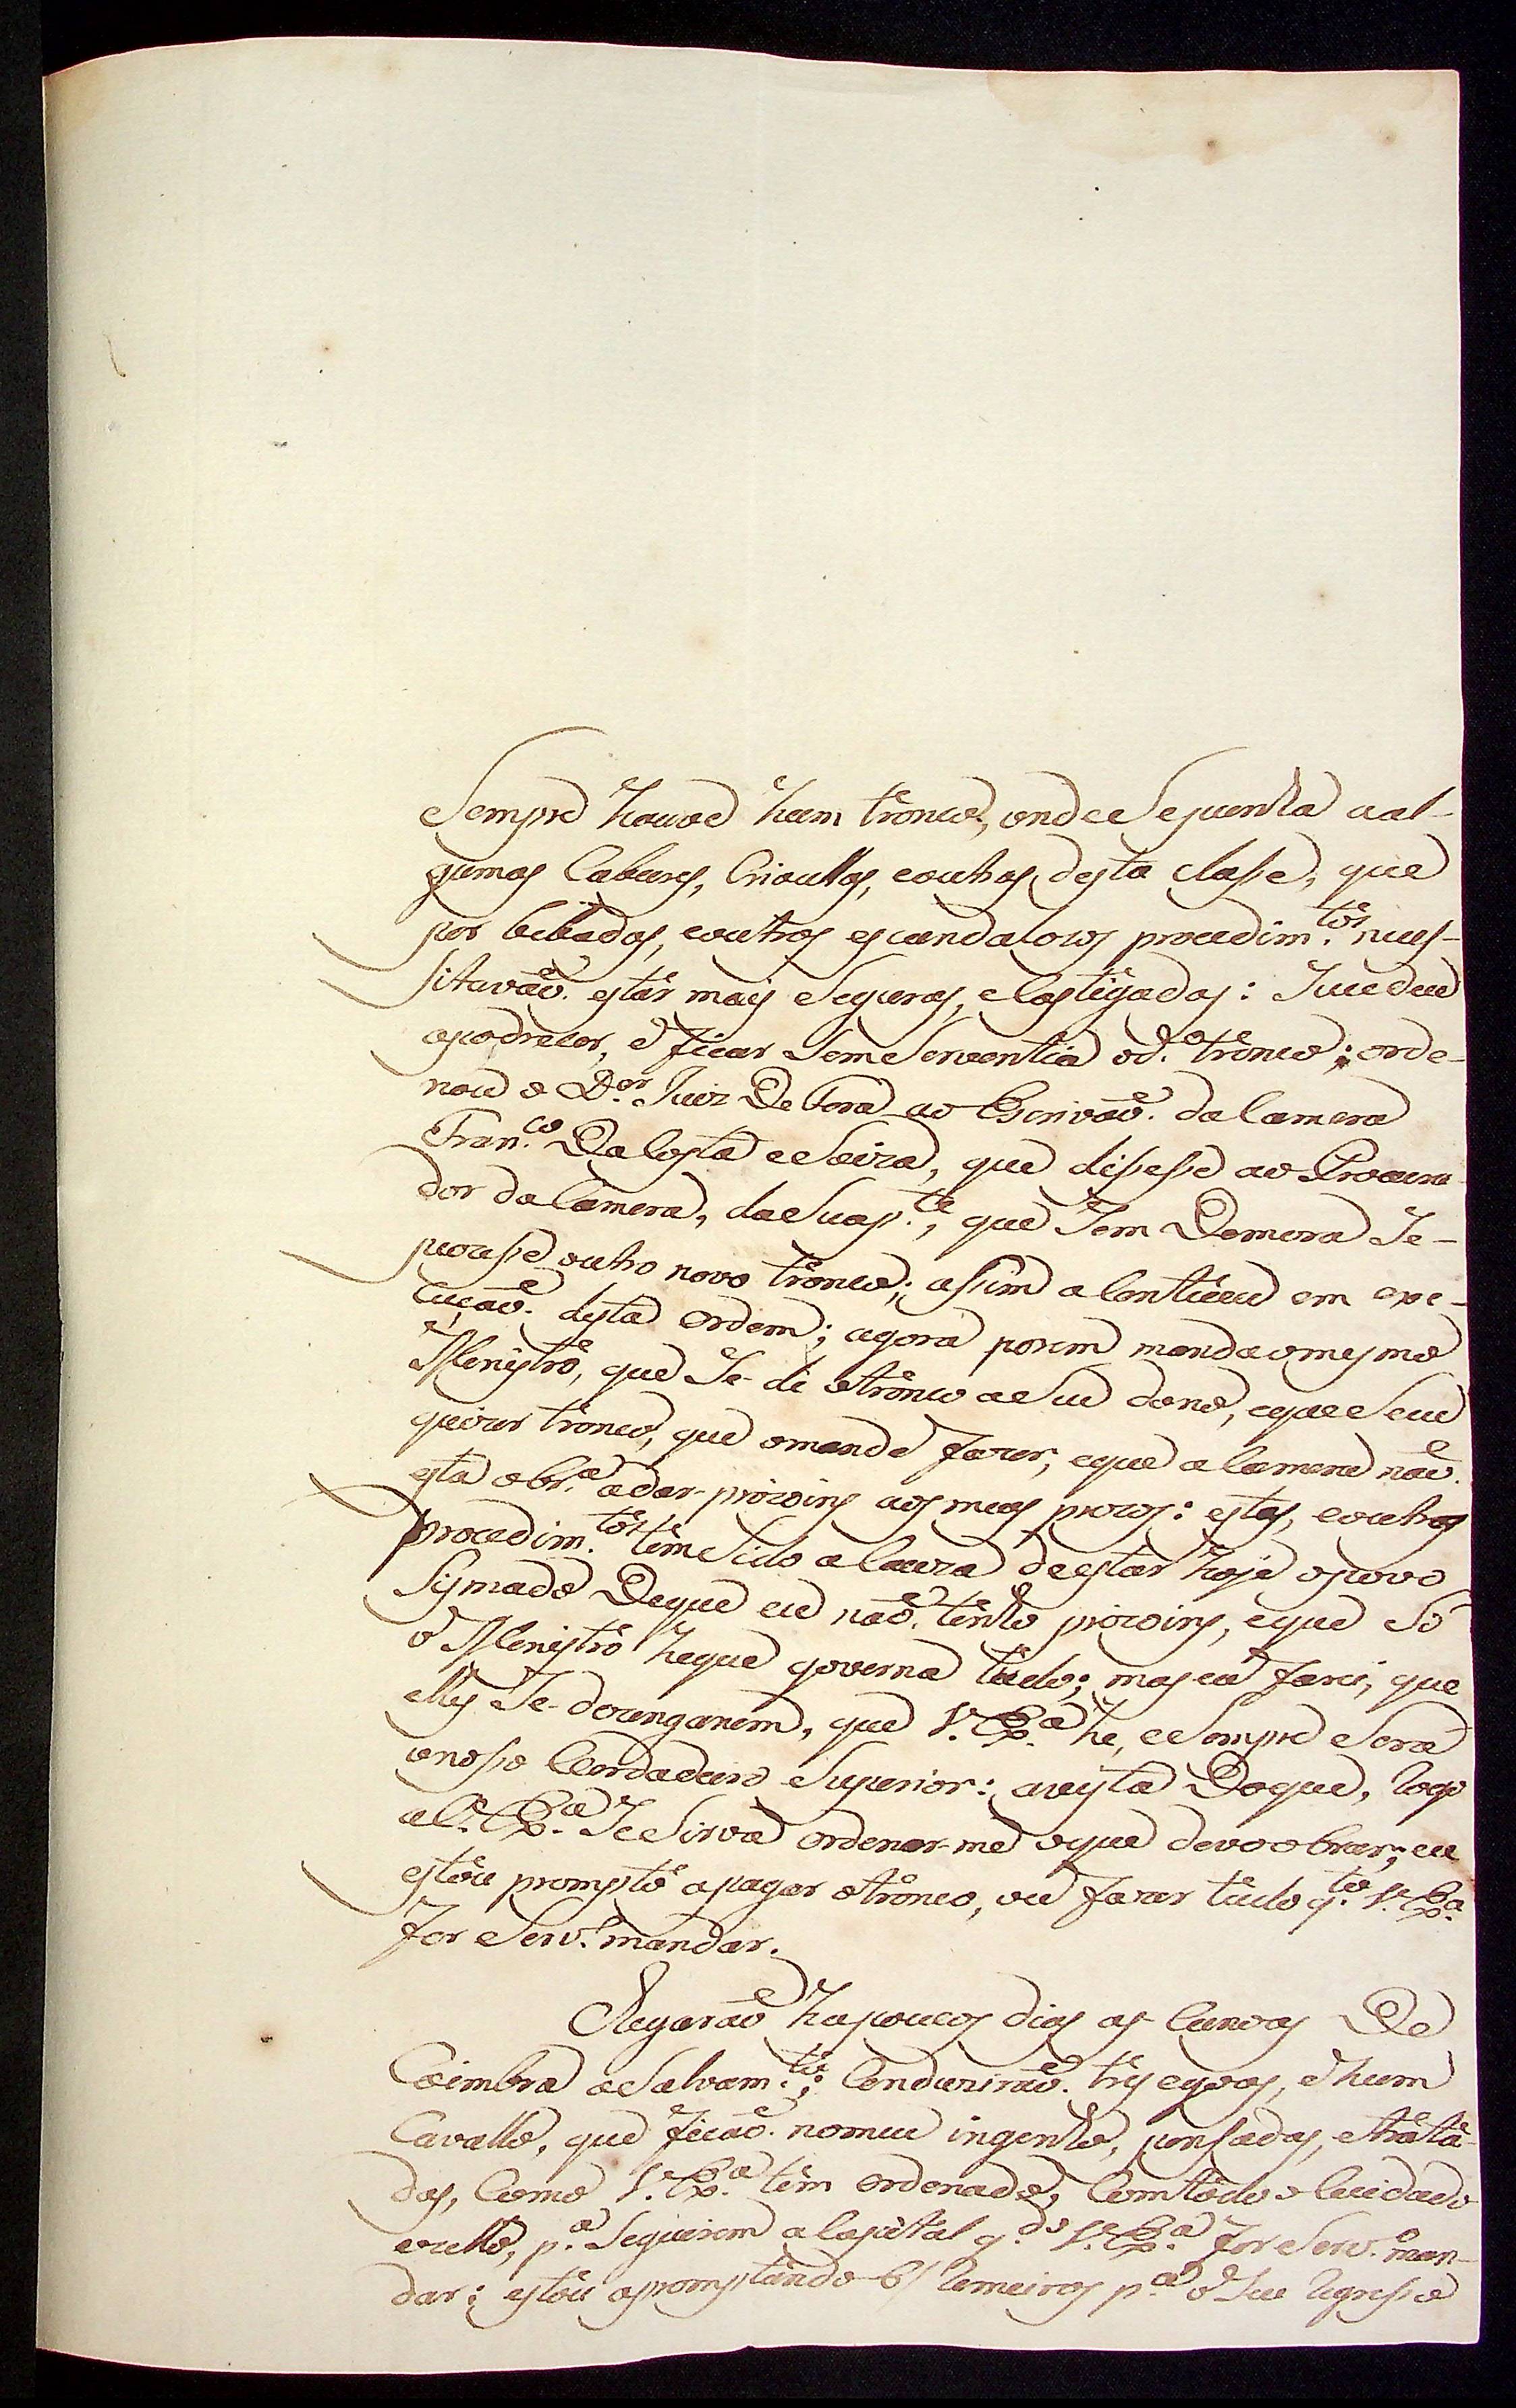 Sempre houve hum tronco, onde Sepunha aal-
gumas Cabeças, Crioullos, eoutros desta classe, que
por bebados, eoutros escandalozos procedim.tos neces-
sitavão estar mais Seguros, eCastigados: Sucedeu
apodrecer, e ficar Sem Serventia od.o tronco; orde-
nou o D.or Juiz De Fora ao Escrivão da Camera
Fran.co Da Costa eSeixa, que disesse ao Procura-
dor da Camera, da Sua p.te, que Sem Demora Se-
puzesse outro novo tronco; assim aConteceu em exe-
cução desta ordem; agora porem manda omesmo
Menistro, que Se-dê otronco aSeu dono, eque eSe eu
quizer tronco, que omande fazer, eque aCamera não
está obr.a adar-prizoins aos meus prezos: estes, eoutros
procedim.tos tem Sido aCauza deestar hoje opovo
Sismado Deque eu não tenho prizoins, eque Só
o Menistro heque governa tudo; mas eu farei, que
elles Se-dezenganem, que V. Ex.a he, eSempre Será
onosso Verdadeiro Superior: avista Doque, rogo
aV. Ex.a SeSirva ordenar-me oque devo obrar; eu
estou prompto apagar otronco, ou fazer tudo q.to V. Ex.a
for Serv.o mandar.
Chegarão hapoucos dias as Canoas De
Coimbra aSalvam.to; Conduzirão tres egoas, e hum
Cavallo, que ficão nomeu ingenho, pensados, etrata-
dos, Como V. Ex.a tem ordenado, Comtodo oCuidado
ezello, p.a Seguirem aCapital q.do V. Ex.a for Serv.o man-
dar: estou apromptando 6 remeiros p.a o Seu regresso